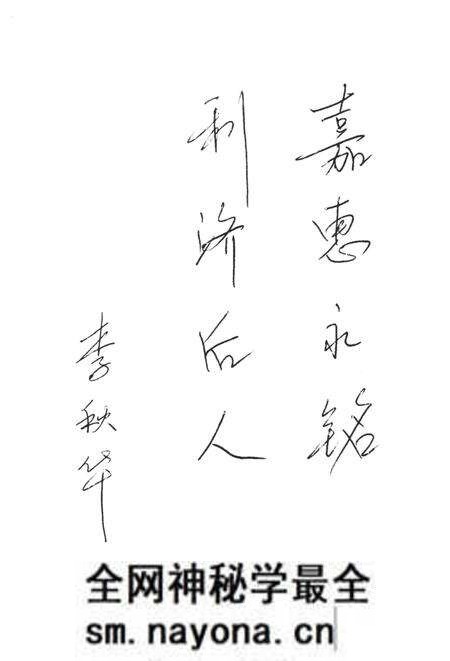 嘉惠永铭
利济后人
李秋华
全网神秘学最全
sm.nayona.cn